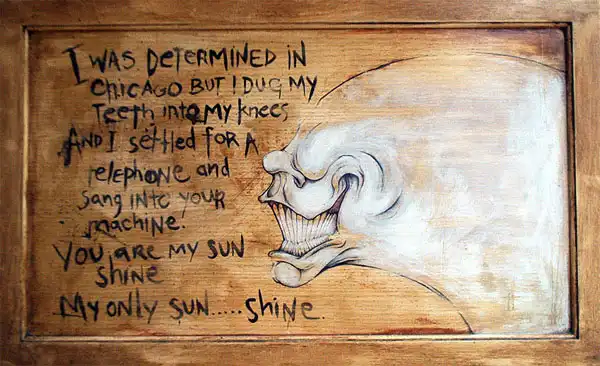 I WAS DETERMINED IN
CHICAGO BUT I DUG MY
TEETH INTO MY KNEES
AND I SETTLED FOR A
TELEPHONE AND
SANG INTO YOUR
MACHINE.
YOU ARE MY SUN
SHINE
MY ONLY SUN.....SHINE.